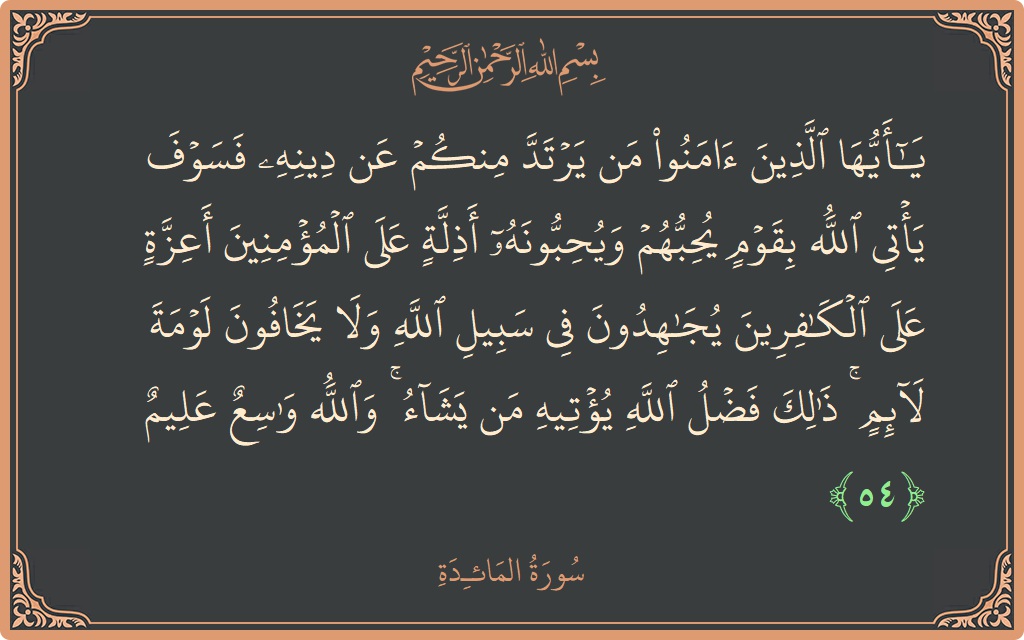 بِسْمِ اللهِ الرَّحْمٰنِ الرَّحِيْمِ
يَـٰٓأَيُّهَا ٱلَّذِينَ ءَامَنُوا۟ مَن يَرْتَدَّ مِنكُمْ عَن دِينِهِۦ فَسَوْفَ
يَأْتِى ٱللَّهُ بِقَوْمٍ يُحِبُّهُمْ وَيُحِبُّونَهُۥٓ أَذِلَّةٍ عَلَى ٱلْمُؤْمِنِينَ أَعِزَّةٍ
عَلَى ٱلْكَـٰفِرِينَ يُجَـٰهِدُونَ فِى سَبِيلِ ٱللَّهِ وَلَا يَخَافُونَ لَوْمَةَ
لَآئِمٍ ۚ ذَٰلِكَ فَضْلُ ٱللَّهِ يُؤْتِيهِ مَن يَشَآءُ ۚ وَٱللَّهُ وَٰسِعٌ عَلِيمٌ
﴿٥٤﴾
سُورَةُ المَائـِدَةِ